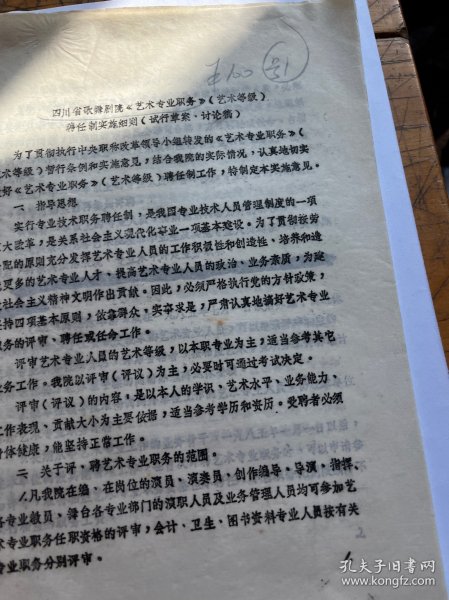 四川省歌舞剧院《艺术专业职务》(艺术等级)
聘任制实施细则(试行草案·讨论稿)
为了贯彻执行中央职称改革领导小组转发的《艺术专业职务》(
术等级)暂行条例和实施意见,结合我院的实际情况,认真地切实
好《艺术专业职务》(艺术等级)聘任制工作,特制定本实施意见。
一 指导思想
实行专业技术职务聘任制,是我国专业技术人员管理制度的一项
大改革,是关系社会主义现代化事业一项基本建设。为了贯彻按劳
配的原则充分发挥艺术专业人员的工作积极性和创造性,培养和造
更多的艺术专业人才、提高艺术专业人员的政治、业务素质,为建
社会主义精神文明作出贡献。因此,必须严格执行党的方针政策,
持四项基本原则,依靠群众,实事求是,严肃认真地搞好艺术专业
务的评审、聘任或任命工作。
评审艺术专业人员的艺术等级,以本职专业为主,适当参考其它
务工作。我院以评审(评议)为主,必要时可通过考试决定。
评审(评议)的内容,是以本人的学识、艺术水平、业务能力、
作表现、贡献大小为主要依据,适当参考学历和资历。受聘者必须
体健康,能坚持正常工作。
二 关于评、聘艺术专业职务的范围。
1.凡我院在编、在岗位的演员、演奏员、创作编导、导演、指挥、
专业教员、舞台各专业部门的演职人员及业务管理人员均可参加艺
术专业职务任职资格的评审,会计、卫生、图书资料专业人员按有关
专业职务分别评审。
2
孔夫子旧书网
www.kongfz.com